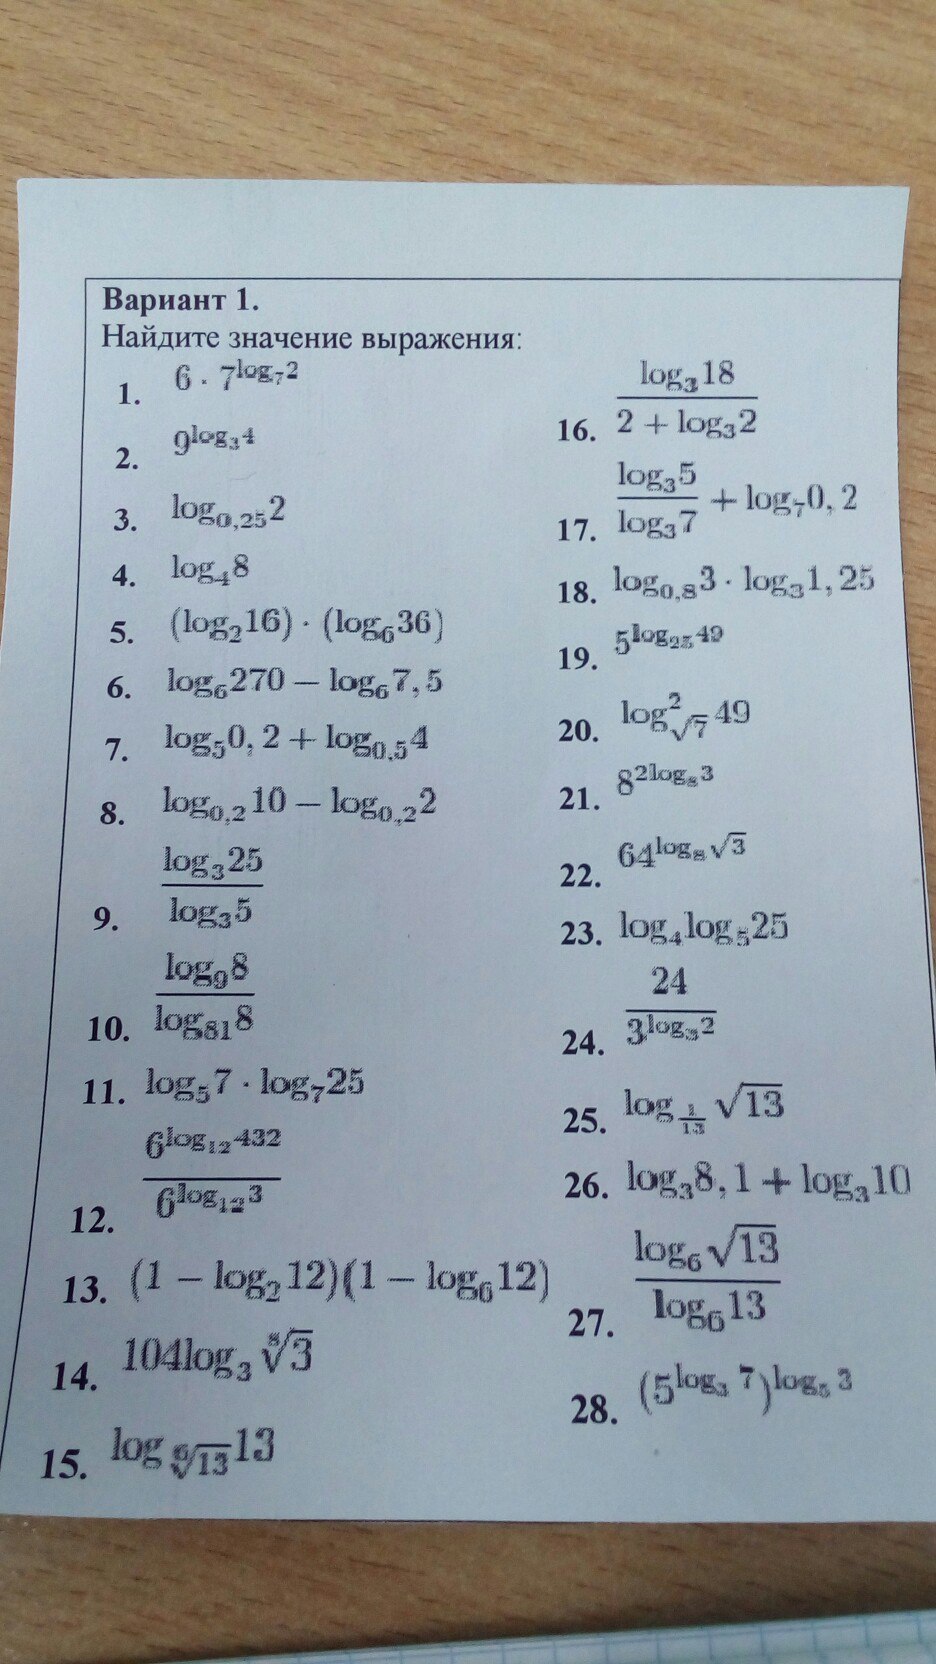 Вариант 1.
Найдите значение выражения:
1. 6 · 7^{log_7 2}
2. 9^{log_3 4}
3. log_{0,25} 2
4. log_4 8
5. (log_2 16) · (log_6 36)
6. log_6 270 − log_6 7,5
7. log_5 0,2 + log_{0,5} 4
8. log_{0,2} 10 − log_{0,2} 2
9. \frac{log_3 25}{log_3 5}
10. \frac{log_9 8}{log_{81} 8}
11. log_5 7 · log_7 25
12. \frac{6^{log_{12} 432}}{6^{log_{12} 3}}
13. (1 − log_2 12)(1 − log_6 12)
14. 104log_3 \sqrt[8]{3}
15. log_{\sqrt[6]{13}} 13
16. \frac{log_3 18}{2 + log_3 2}
17. \frac{log_3 5}{log_3 7} + log_7 0,2
18. log_{0,8} 3 · log_3 1,25
19. 5^{log_{25} 49}
20. log^2_{\sqrt{7}} 49
21. 8^{2log_8 3}
22. 64^{log_8 \sqrt{3}}
23. log_4 log_5 25
24. \frac{24}{3^{log_3 2}}
25. log_{\frac{1}{13}} \sqrt{13}
26. log_3 8,1 + log_3 10
27. \frac{log_6 \sqrt{13}}{log_6 13}
28. (5^{log_3 7})^{log_5 3}